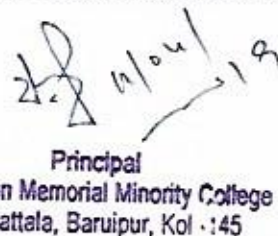 11/04/19
Principal
n Memorial Minority College
attala, Baruipur, Kol -145